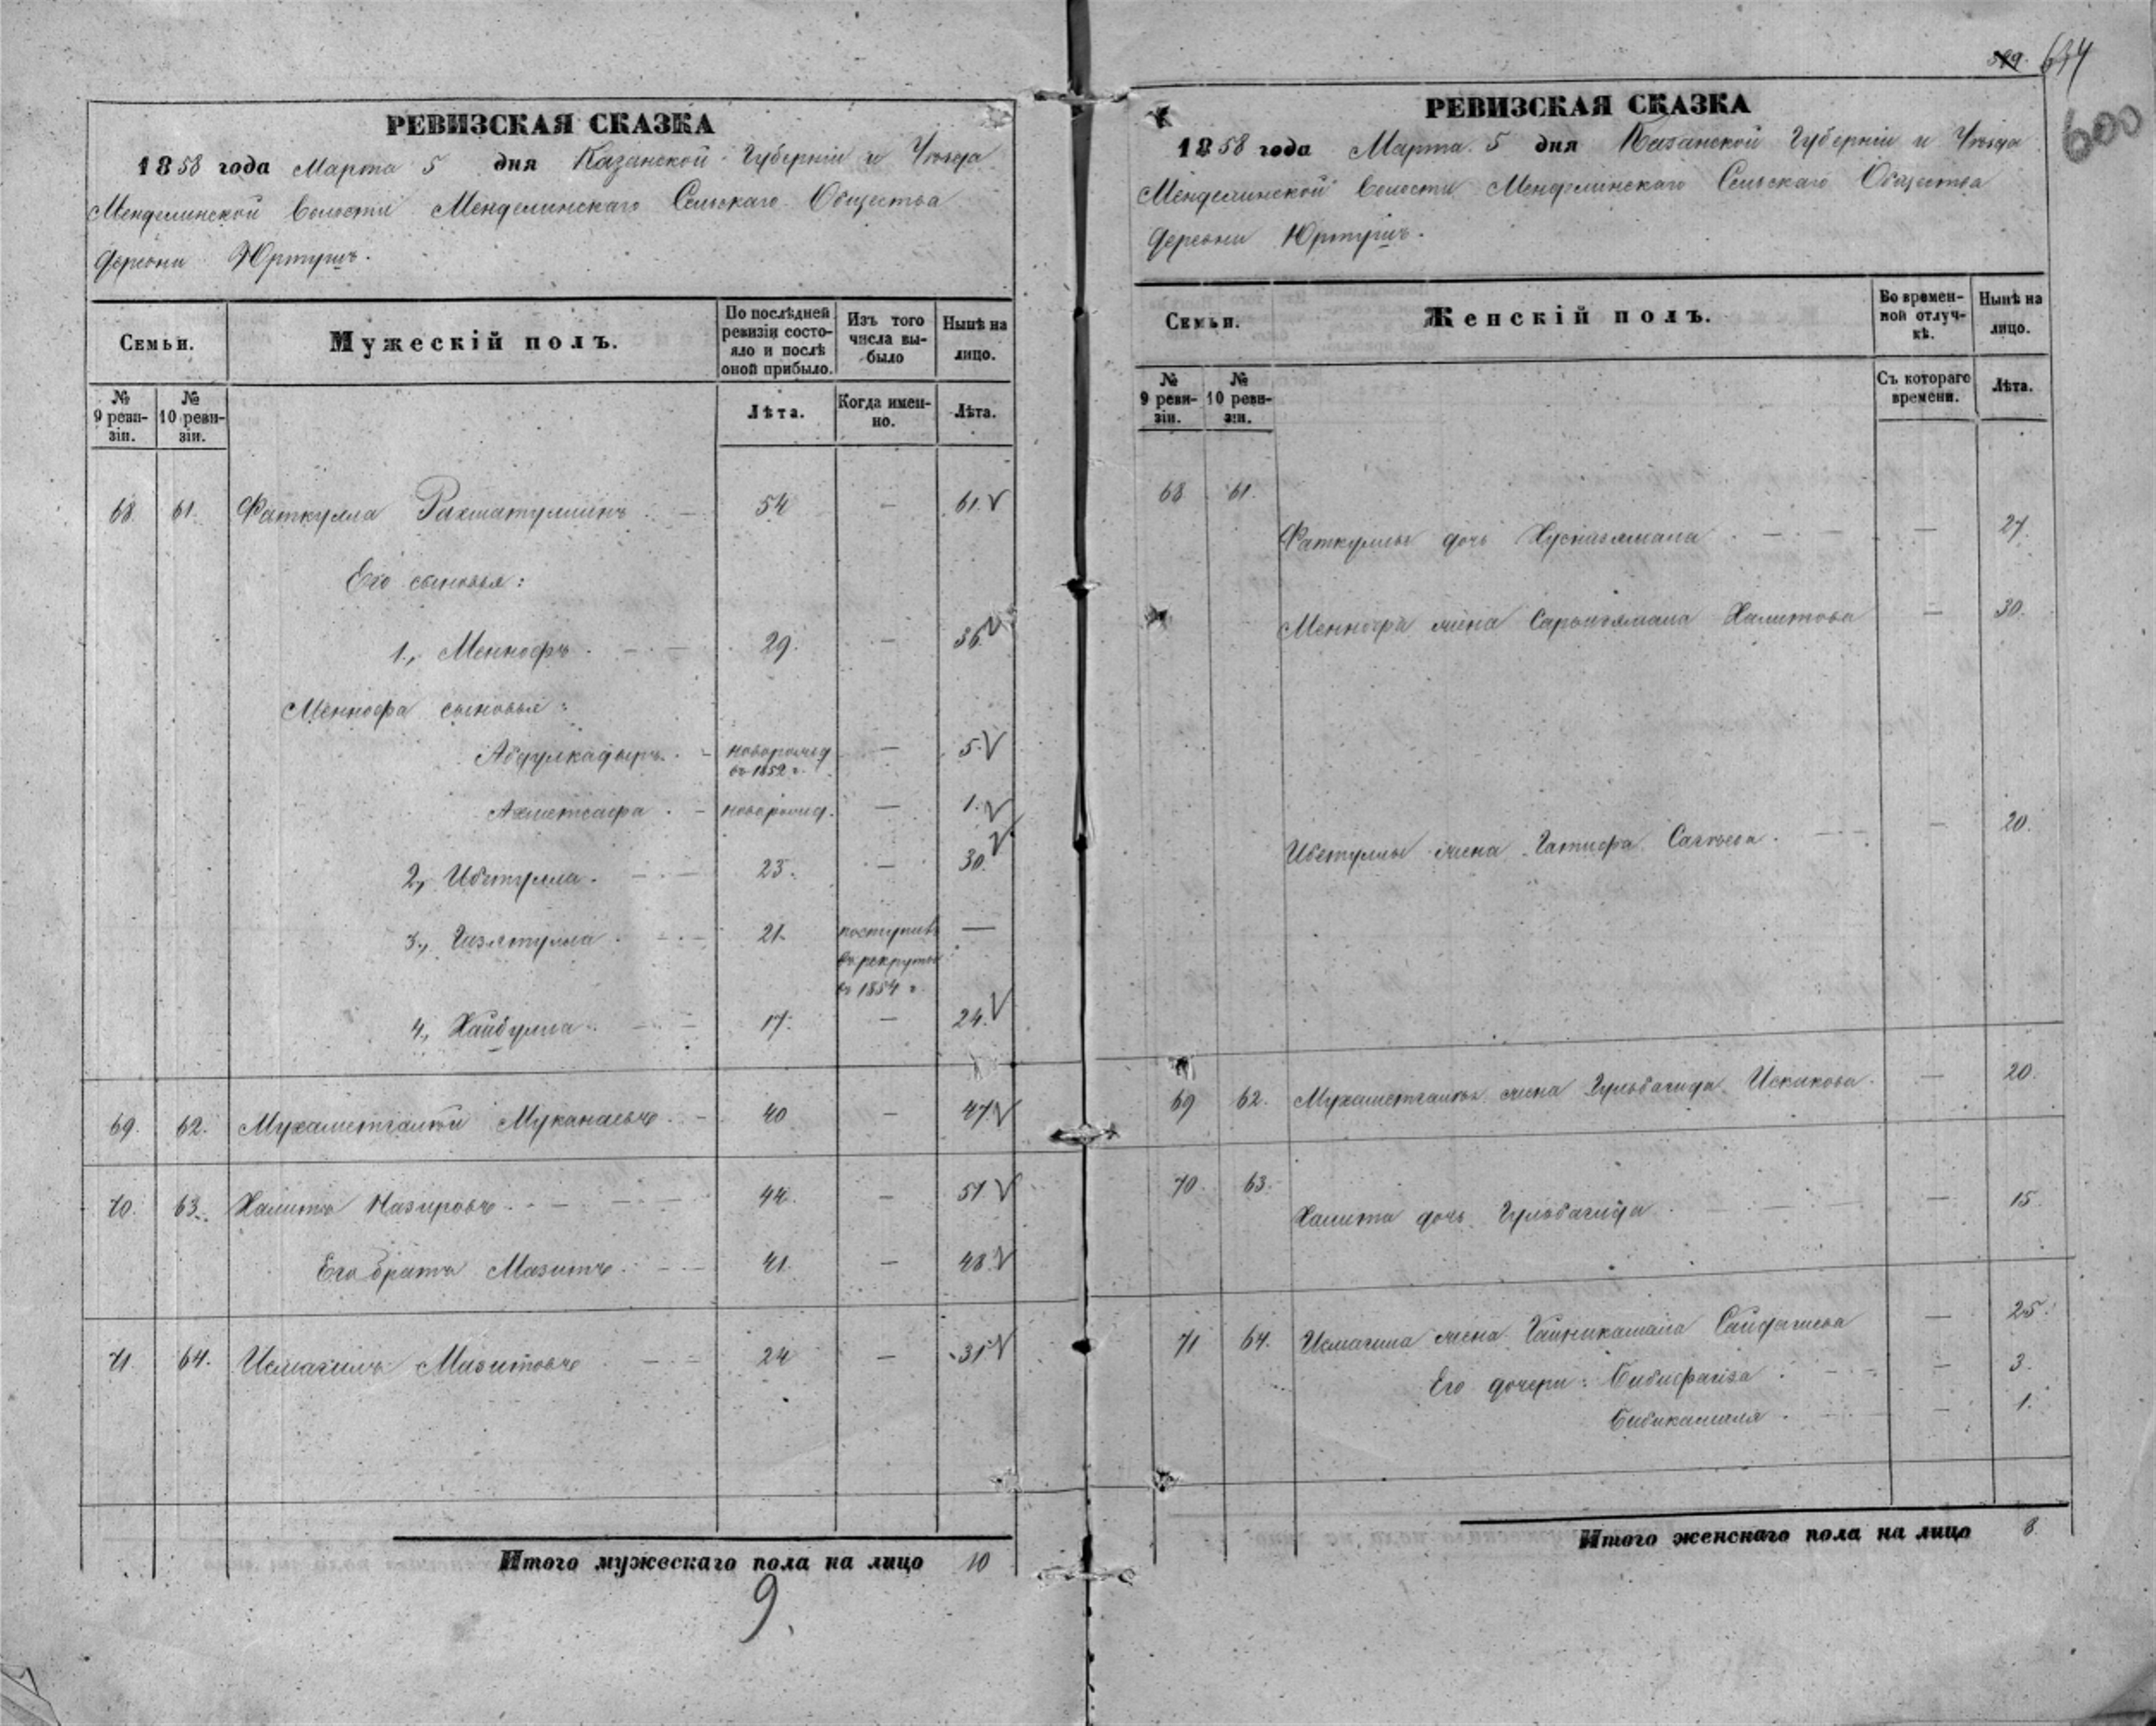 РЕВИЗСКАЯ СКАЗКА
1858 года Марта 5 дня Казанской Губерніи и Уѣзда
Менделинской Волости Менделинскаго Сельскаго Общества
деревни Юртушъ.
Семьи.
Мужескій полъ.
По послѣдней ревизіи состояло и послѣ оной прибыло.
Изъ того числа выбыло
Нынѣ на лицо.
№ 9 ревизіи.
№ 10 ревизіи.
Лѣта.
Когда именно.
Лѣта.
68. 61. Фаткулла Рахматуллинъ 54 — 61
Его сыновья:
1., Меннофъ 29. — 36
Меннофа сыновья:
Абдулкадыръ новорожд въ 1852 г. — 5.
Ахметсафа новорожд. — 1.
2, Ибетулла. 23. — 30.
3., Гизятулла 21. поступилъ въ рекруты въ 1854 г —
4., Хайбулла 17. — 24.
69. 62. Мухаметгалѣй Муканаевъ 40 — 47
70. 63. Халитъ Назировъ 44. — 51
Его братъ Мазитъ 41. — 48.
71. 64. Исмагилъ Мазитовъ 24 — 31
Итого мужескаго пола на лицо 10
9.
599. 634
600
РЕВИЗСКАЯ СКАЗКА
1858 года Марта 5 дня Казанской Губерніи и Уѣзда
Менделинской Волости Менделинскаго Сельскаго Общества
деревни Юртушъ.
Семьи.
Женскій полъ.
Во временной отлучкѣ.
Нынѣ на лицо.
№ 9 ревизіи.
№ 10 ревизіи.
Съ котораго времени.
Лѣта.
68 61.
Фаткуллы дочь Хуснизямала — 27.
Меннофа жена Сарвизямала Халитова — 30.
Ибетуллы жена Латифа — 20.
69 62. Мухаметгалѣя жена Гульбагида Искакова. — 20.
70. 63.
Халита дочь Гульбагида — 15.
71 64. Исмагила жена Гайникамала Сайдашева — 25.
Его дочери: Бибифаиза — 3.
Бибикамаля — 1.
Итого женскаго пола на лицо 8.